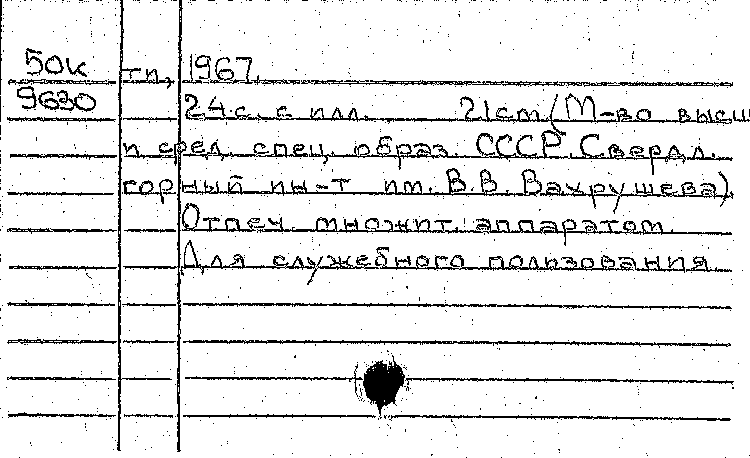 50к ти, 1967.
9630 24 с. с илл. 21cm (М-во высш
и сред. спец. образ. СССР. Свердл.
горный ин-т им. В.В. Вахрушева).
Отпеч. множит. аппаратом.
Для служебного ползования